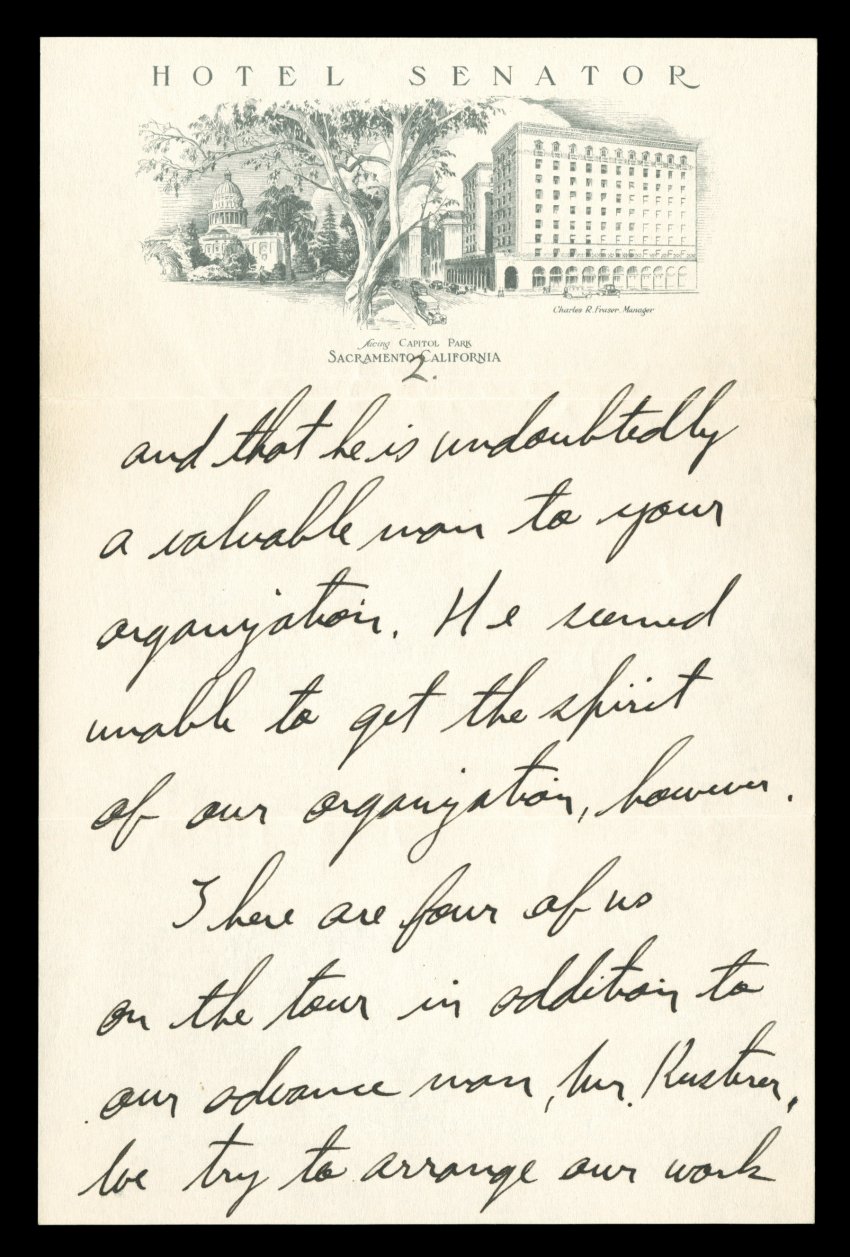 HOTEL SENATOR
Charles R. Fraser, Manager
facing CAPITOL PARK
SACRAMENTO CALIFORNIA
2.
and that he is undoubtedly
a valuable man to your
organization. He seemed
unable to get the spirit
of our organization, however.
There are four of us
on the tour in addition to
our advance man, Mr. Rusterer.
We try to arrange our work